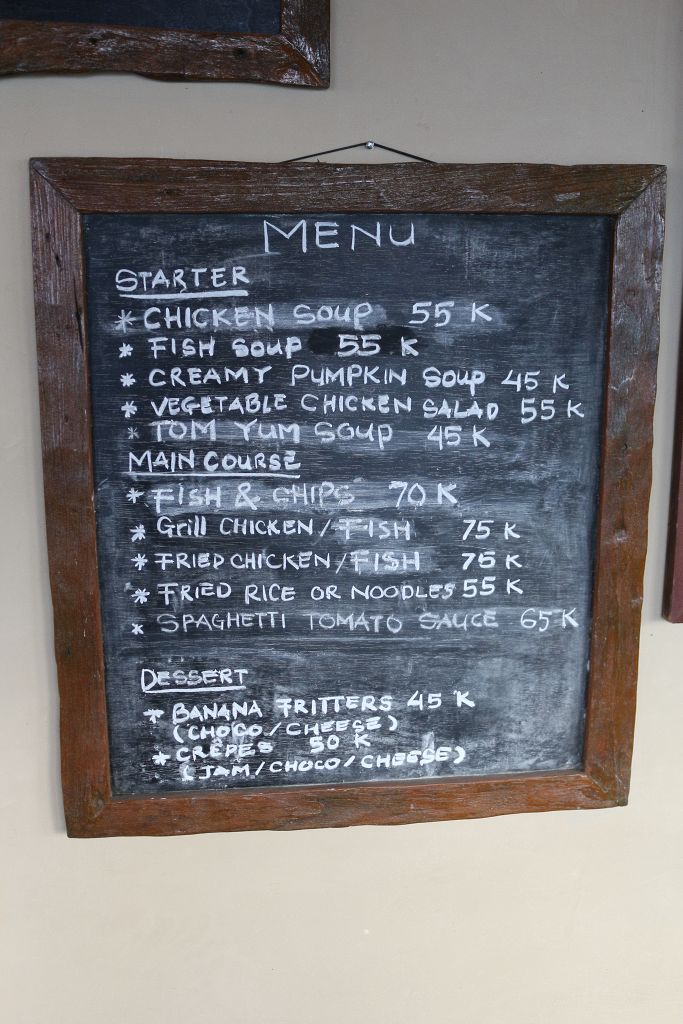 MENU
STARTER
* CHICKEN SOUP 55 K
* FISH SOUP 55 K
* CREAMY PUMPKIN SOUP 45 K
* VEGETABLE CHICKEN SALAD 55 K
* TOM YUM SOUP 45 K
MAIN COURSE
* FISH & CHIPS 70 K
* Grill CHICKEN/FISH 75 K
* FRIED CHICKEN/FISH 75 K
* FRIED RICE OR NOODLES 55 K
* SPAGHETTI TOMATO SAUCE 65 K
DESSERT
* BANANA FRITTERS 45 K
(CHOCO/CHEESE)
* CRÊPES 50 K
(JAM/CHOCO/CHEESE)